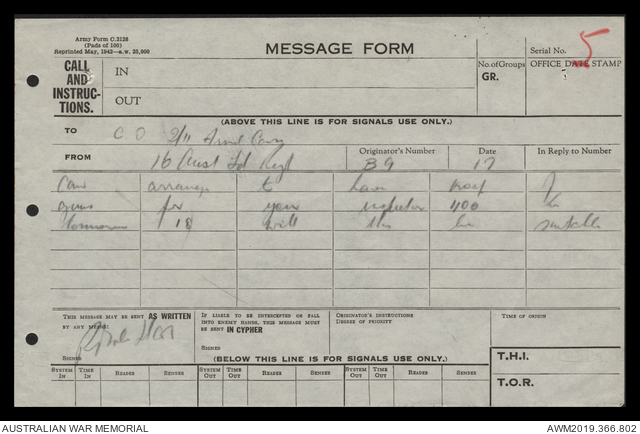 Army Form C.2128
(Pads of 100)
Reprinted May, 1942—A.W. 25,000
MESSAGE FORM
Serial No. 5
CALL AND INSTRUCTIONS.
IN
OUT
No. of Groups
GR.
OFFICE DATE STAMP
(ABOVE THIS LINE IS FOR SIGNALS USE ONLY.)
TO
C O 2/11
FROM
16 Aust Fd Regt
Originator's Number
B 9
Date
17
In Reply to Number
Can arrange to have
guns for your inspector 400
tomorrow 18 will this be suitable
THIS MESSAGE MAY BE SENT AS WRITTEN BY ANY MEANS
SIGNED
IF LIABLE TO BE INTERCEPTED OR FALL INTO ENEMY HANDS, THIS MESSAGE MUST BE SENT IN CYPHER
SIGNED
ORIGINATOR'S INSTRUCTIONS
DEGREE OF PRIORITY
TIME OF ORIGIN
(BELOW THIS LINE IS FOR SIGNALS USE ONLY.)
T.H.I.
SYSTEM IN TIME IN READER SENDER SYSTEM OUT TIME OUT READER SENDER SYSTEM OUT TIME OUT READER SENDER
T.O.R.
AUSTRALIAN WAR MEMORIAL
AWM2019.366.802